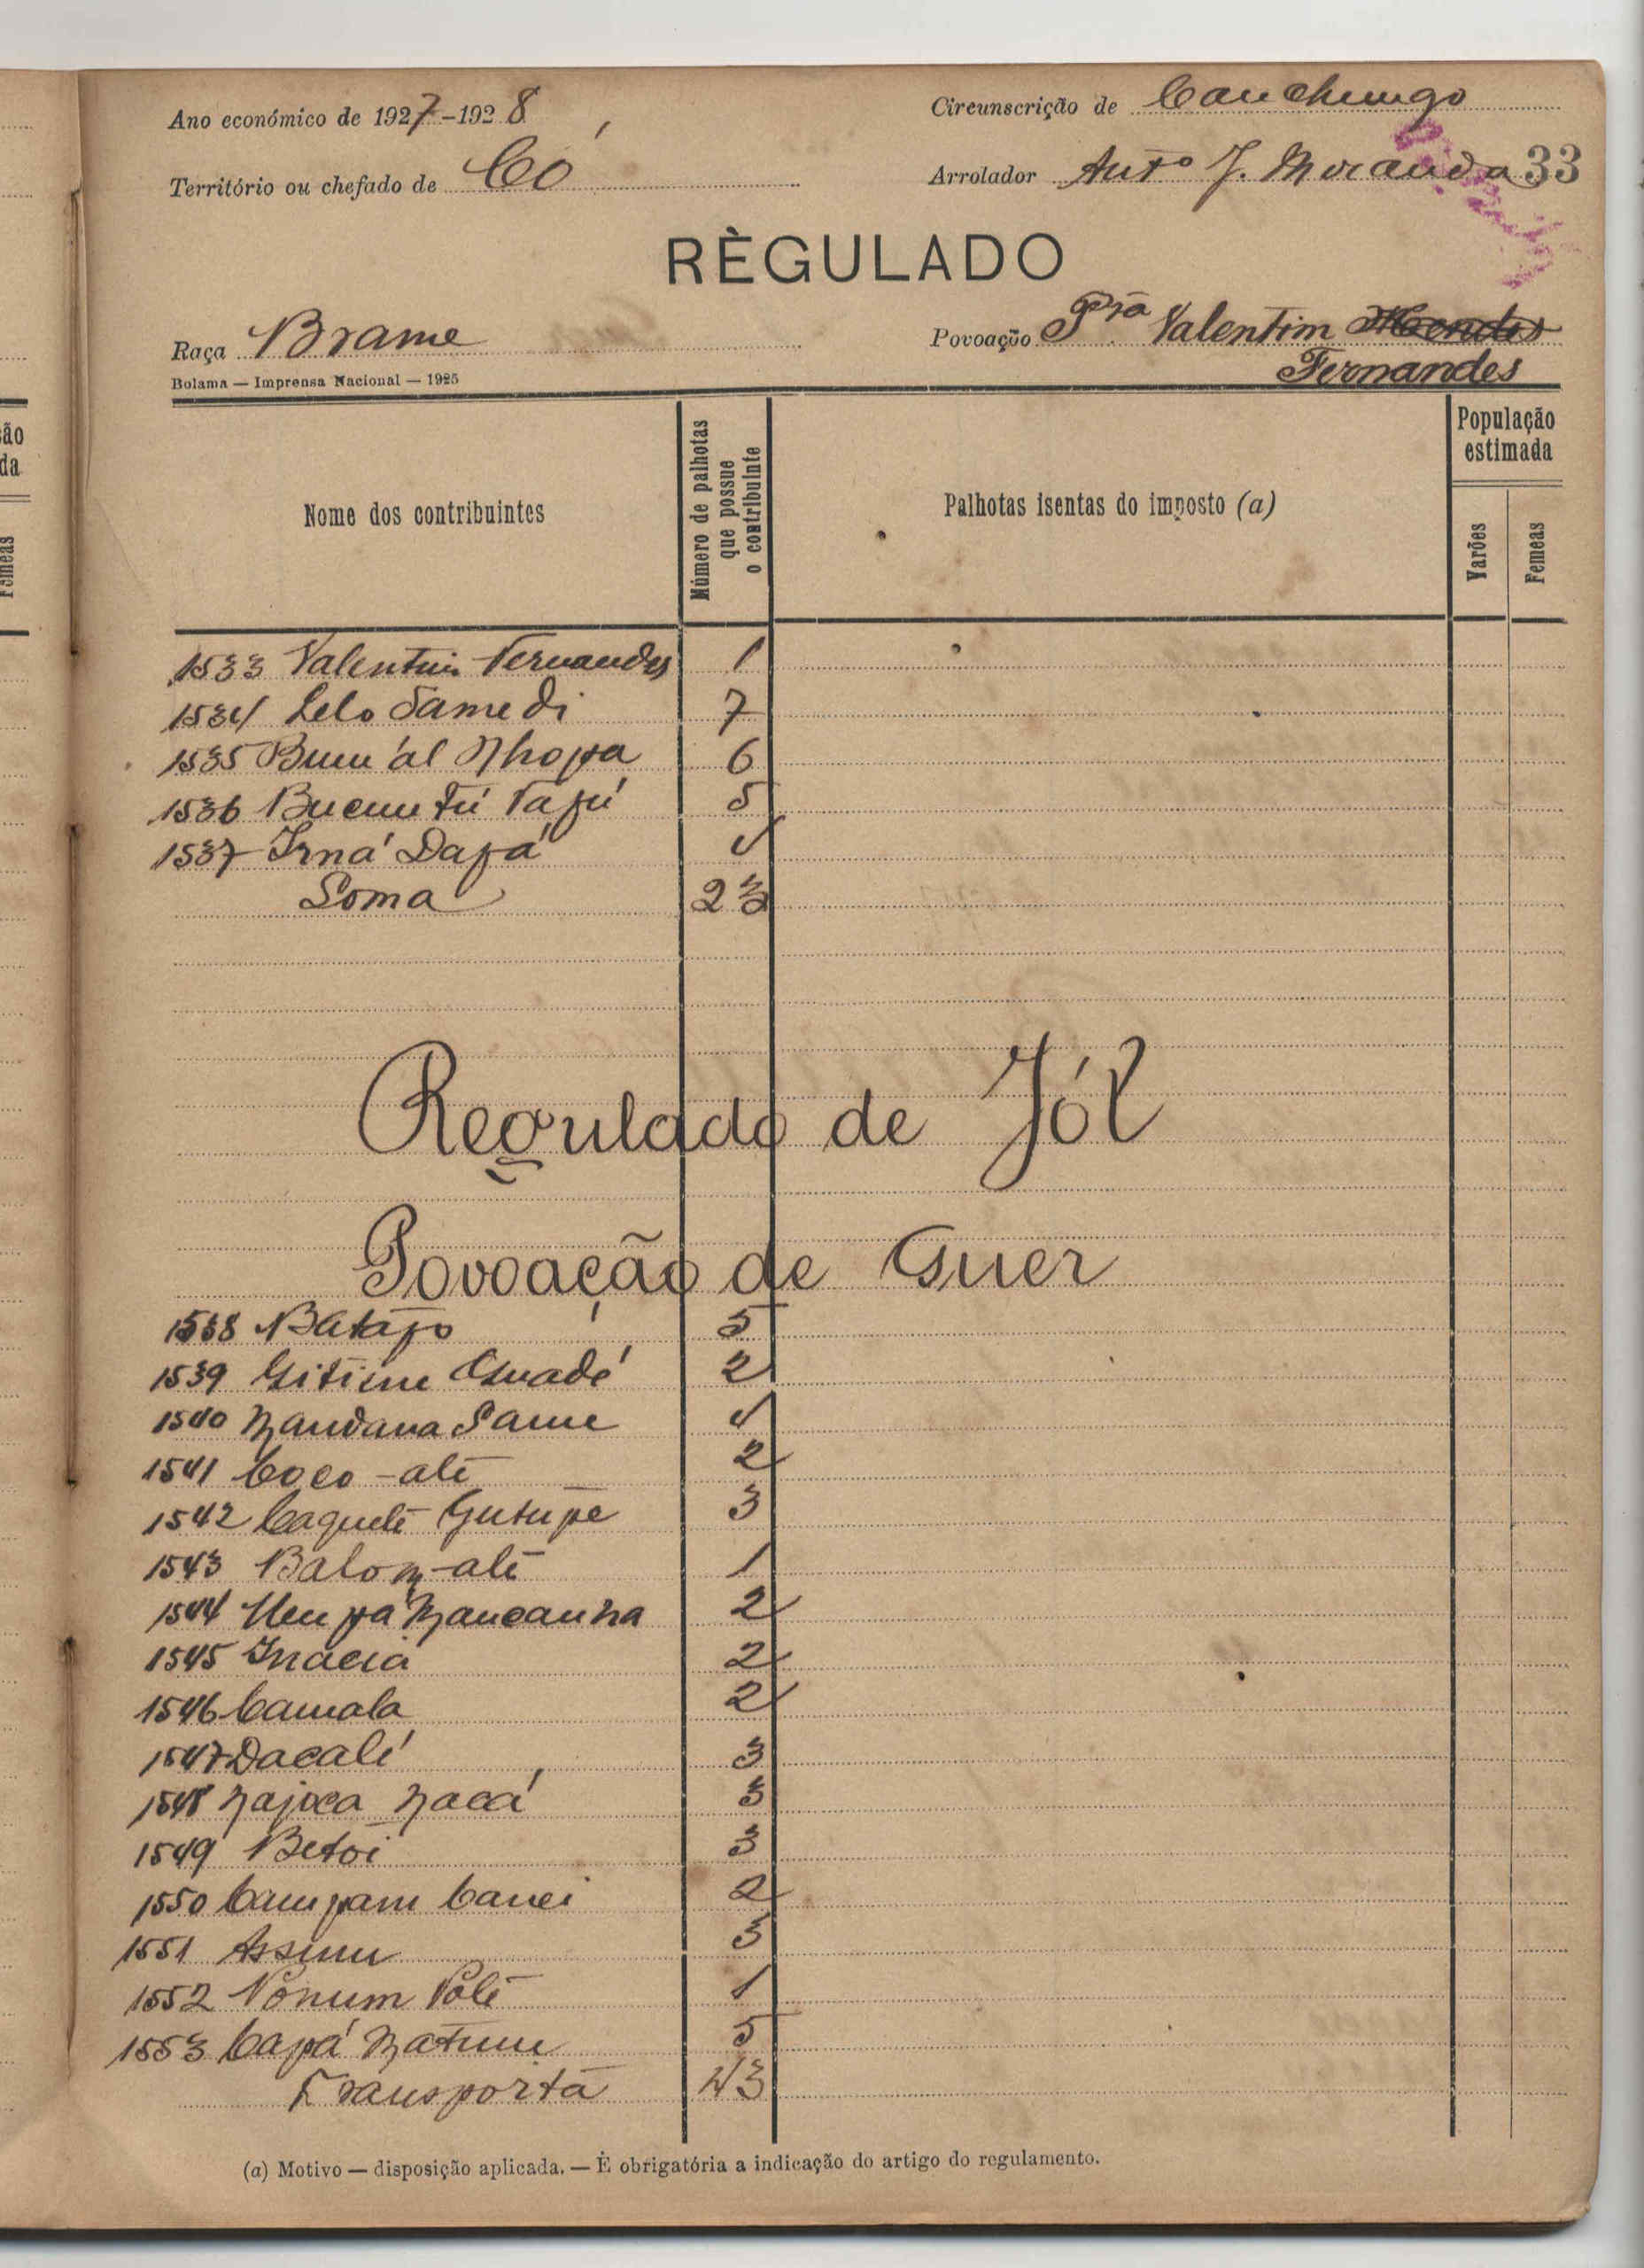 Ano económico de 1927-1928
Circunscrição de Canchungo
Território ou chefado de Có
Arrolador Antº J. Miranda 33
RÈGULADO
Raça Brame
Povoação Pta Valentim Mendes
Fernandes
Bolama — Imprensa Nacional — 1925
Nome dos contribuintes
Número de palhotas que possue o contribuinte
Palhotas isentas do imposto (a)
População estimada
Varões
Femeas
1533 Valentim Fernandes 1
1534 Lelo Samedi 7
1535 Bum'al Nhopa 6
1536 Bucum Fú Vapú 5
1537 Irná Dapá 4
Soma 23
Regulado de Jól
Povoação de Guer
1538 Batápo 5
1539 Gitime Guadé 2
1540 Nandana Same 4
1541 Coco-atê 2
1542 Caquetê Gutupe 3
1543 Balom-atê 1
1544 Umpá Mancanha 2
1545 Inácia 2
1546 Camala 2
1547 Dacalé 3
1548 Najoca Nacá 3
1549 Betoi 3
1550 Campam Canei 2
1551 Assimu 3
1552 Nonum Polê 1
1553 Capá Natum 5
Transporta 43
(a) Motivo — disposição aplicada. — È obrigatória a indicação do artigo do regulamento.